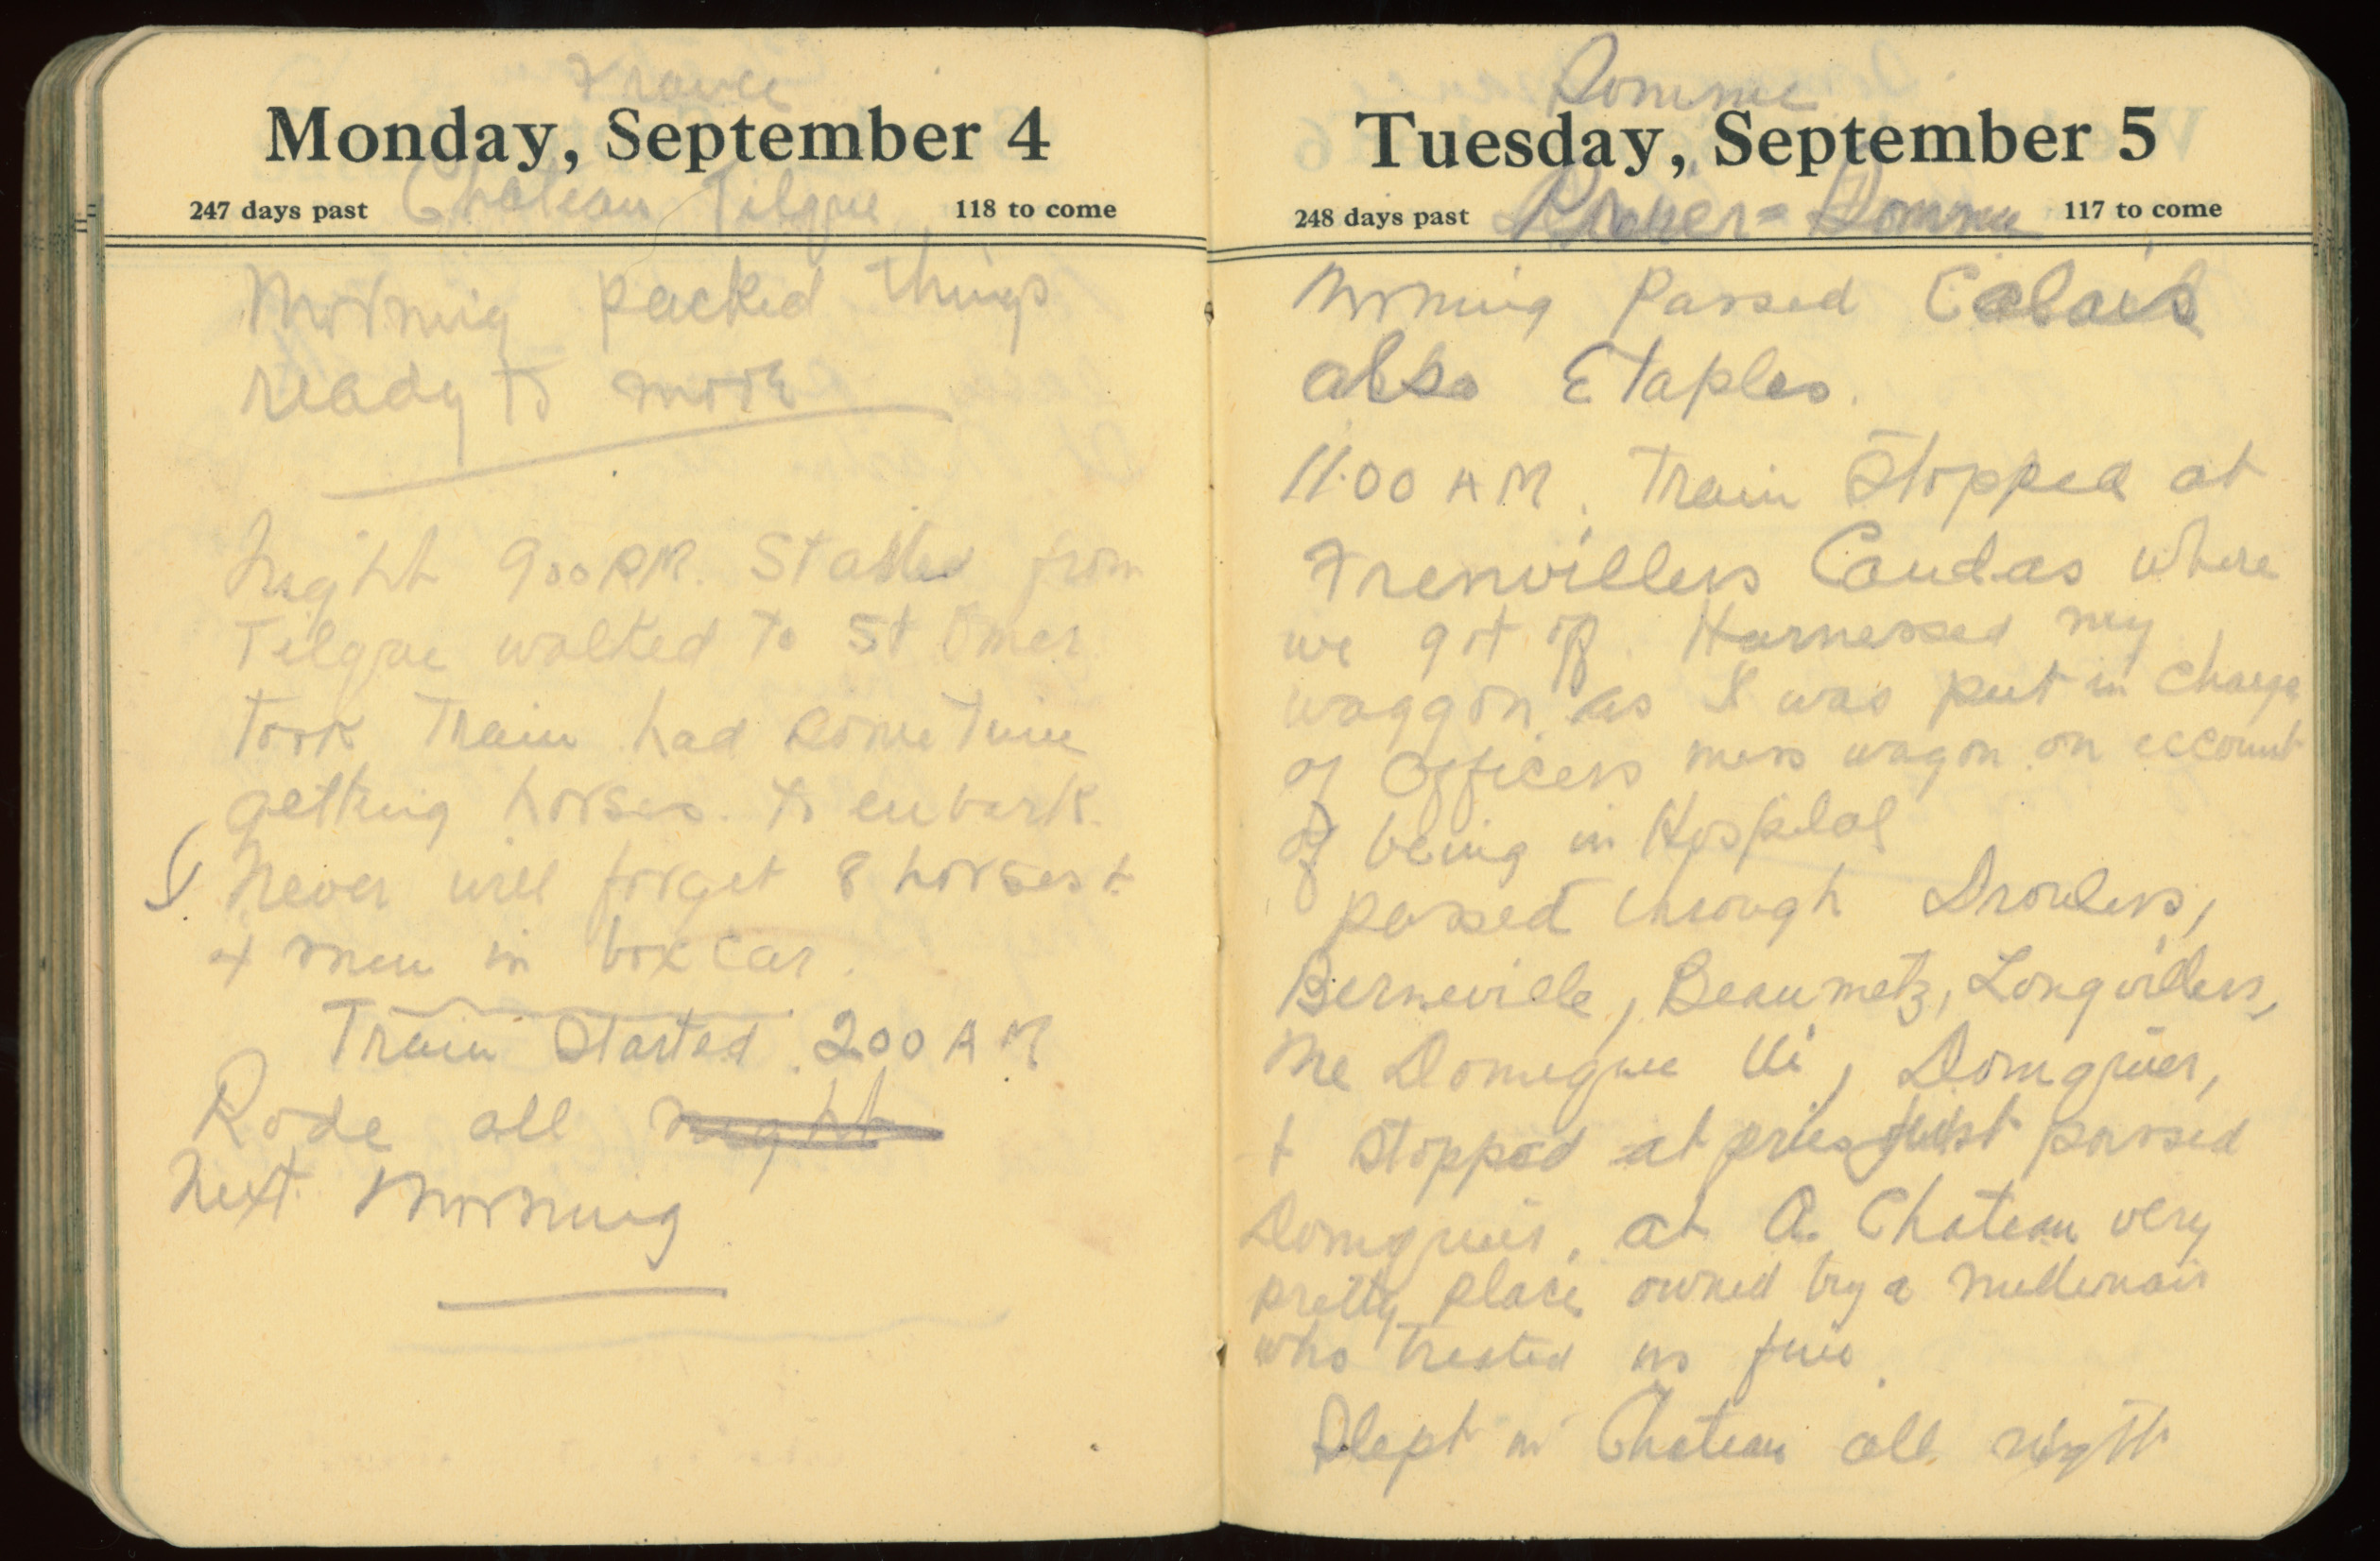 France
Monday, September 4
247 days past Chateau Tilque 118 to come
Morning packed things
ready to move
Night 900 P.M. Started from
Tilque walked to St Omer
Took Train had some time
getting horses to enbark.
Never will forget 8 horses +
4 men in box car.
Train Started 200 AM
Rode all night
Next Morning
Somme
Tuesday, September 5
248 days past Somme 117 to come
Morning Passed Calais
also Etaples.
11.00 AM. Train Stopped at
Frenvillers Candas where
we got off. Harnessed my
waggon as I was put in charge
of Officers mess wagon on account
of being in Hospital
passed through Droulers,
Berneville, Beaumetz, Longvillers,
Me Domegue Ui, Domquer,
+ Stopped at just passed
Domqueir, at A. Chateau very
pretty place owned by a millenair
who treated us fine.
Slept in Chateau all night